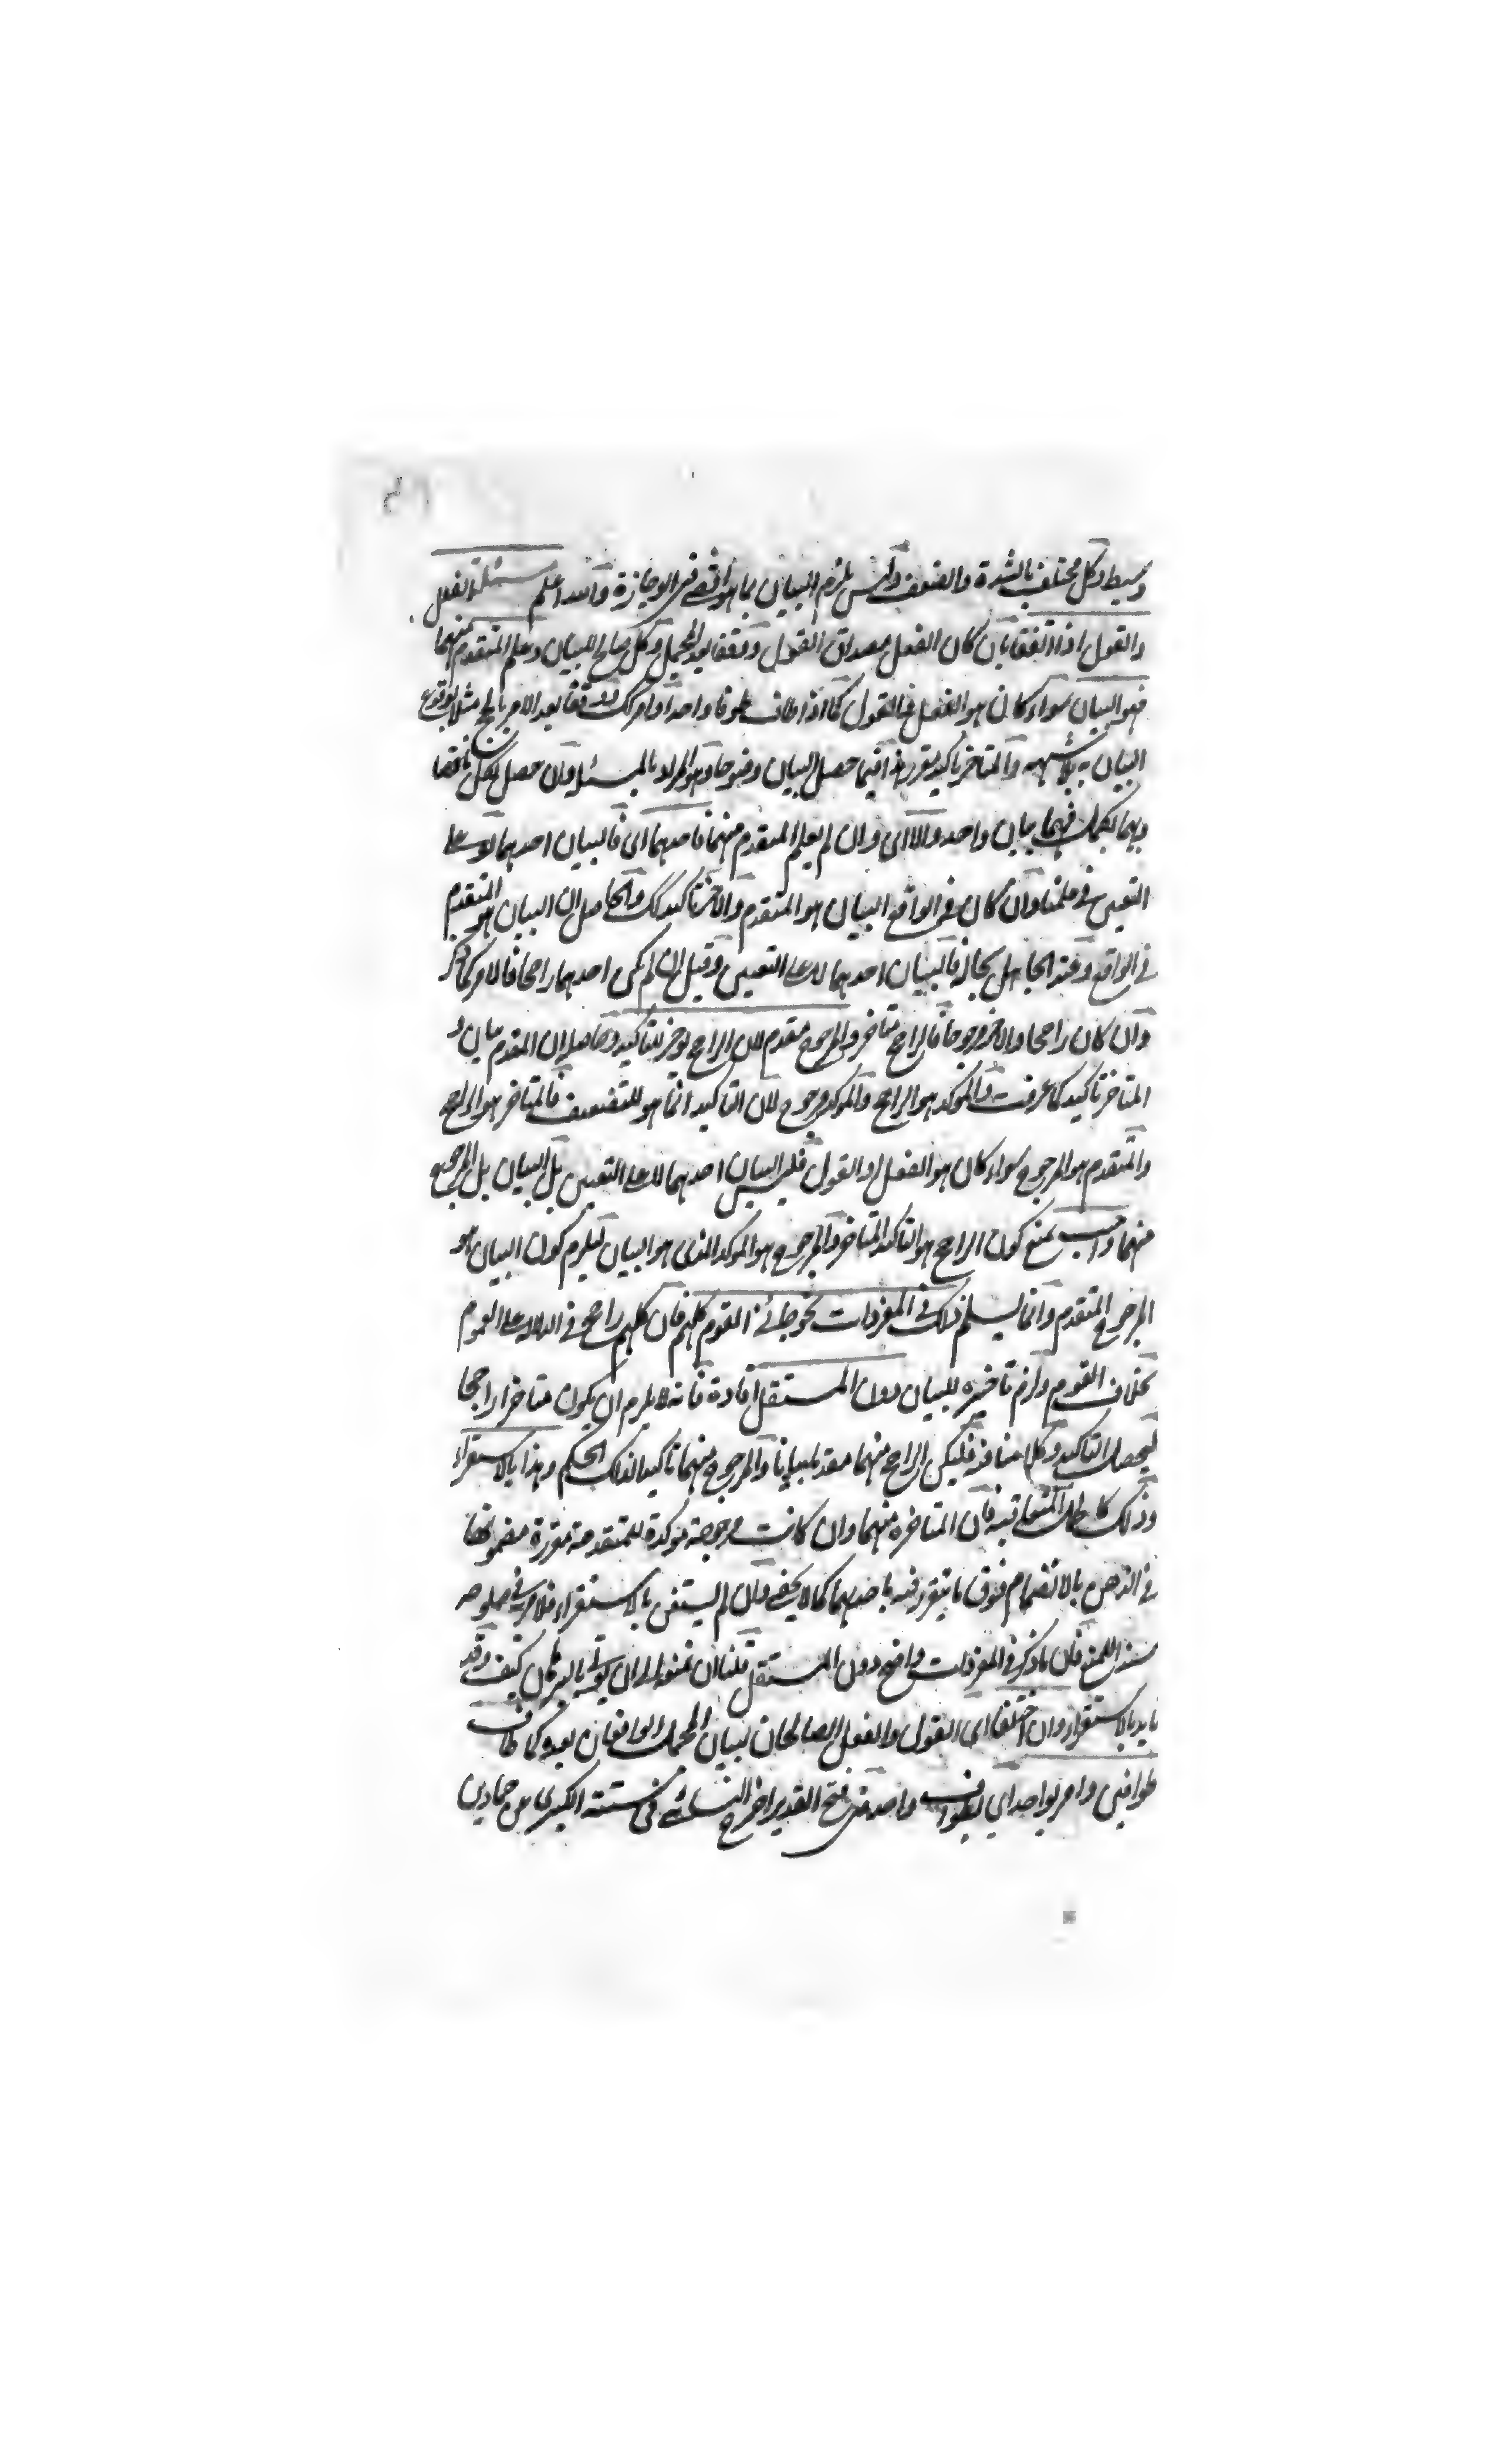 وسيط وكل مختلف بالشدة والضعف وليس يلزم البيان بما هو اقصى في الوجازة والله اعلم مسئلة الفعل
والقول اذا اتفقا بان كان الفعل مصداق القول ووقفا بعد المجمل وكل صالح للبيان وعلم المتقدم منهما
فهو البيان سواء كان هو الفعل او القول كما اذا طاف طوفا واحدا وامر كذلك وقعا بعد الامر بالحج مثلا لوقوع
البيان به بلا شبهة والمتاخر تاكيد يقرر هذا فيما حصل البيان وضوحا وهو المراد بالمسئلة وان حصل بكل ناقصا
وبهما يكمل فهما بيان واحد والا اى وان لم يعلم المتقدم منهما فاحدهما اى فالبيان احدهما لا على
التعيين فى علمنا وان كان فى الواقع البيان هو المتقدم والاخر تاكيد لك والحاصل ان البيان هو المتقدم
فى الواقع وعند الجاهل بحاله فالبيان احدهما لا على التعيين وقيل ان لم يكن احدهما راجحا فالامر كما ذكر
وان كان راجحا والاخر مرجوحا فالراجح متاخر والمرجوح مقدم لان الراجح يوخر للتاكيد وحاصله ان المقدم بيان و
المتاخر تاكيد كما عرفت والموكد هو الراجح والموكد مرجوح لان التاكيد انما هو للتضعيف فالمتاخر هو الراجح
والمتقدم هو المرجوح سواء كان هو الفعل او القول فليس البيان احدهما لا على التعيين بل البيان بل المرجوح
منهما واجيب بمنع كون الراجح هو التاكيد المتاخر والمرجوح هو الموكد الذى هو البيان ليلزم كون البيان هو
المرجوح المتقدم وانما يسلم ذلك فى المفردات نحو جائنى القوم كلهم فان كلهم راجح فى الدلالة على العموم
بخلاف القوم ولزم تاخيره للبيان دون المستقل افادة فانه لا يلزم ان يكون متاخرا راجحا
ليحصل التاكيد وكلامنا فيه فليكن الراجح منهما مقدما بيانا والمرجوح منهما تاكيدا لذلك الحكم وهذا بالاستقراء
وذلك كالجمل المتعاقبة فان المتاخرة منهما وان كانت مرجوحة موكدة للمتقدمة مقررة مضمونها
فى الذهن بالانضمام فوق ما يتقرر فيه باحدهما كما لا يخفى وان لم يستقن بالاستقراء فلا مرية فى صلوحه
سندا للمنع فان ما ذكر فى المفردات واضح دون المستقل قلنا ان نمنعه الى ان يوتى بالبرهان كيف وقد
تايد بالاستقراء وان اختلفا اى القول والفعل الصالحان لبيان المجمل الواقعان بعده كما طاف
طوافين وامر بواحد اى بطواف واحد فى فتح القدير اخرج النسائى فى سننه الكبرى عن حماد بن